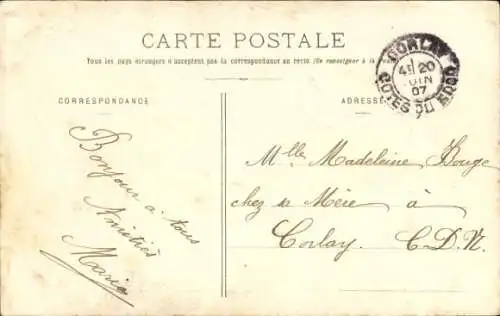 CARTE POSTALE
Tous les pays étrangers n'acceptent pas la correspondance au recto (Se renseigner à la
CORRESPONDANCE
ADRESSE
CORLAY
4E 20
JUIN
07
COTES DU NORD
Bonjour à tous
Amitiés
Maria
Mlle Madeleine Bouge
chez sa Mère à
Corlay. C.D.N.